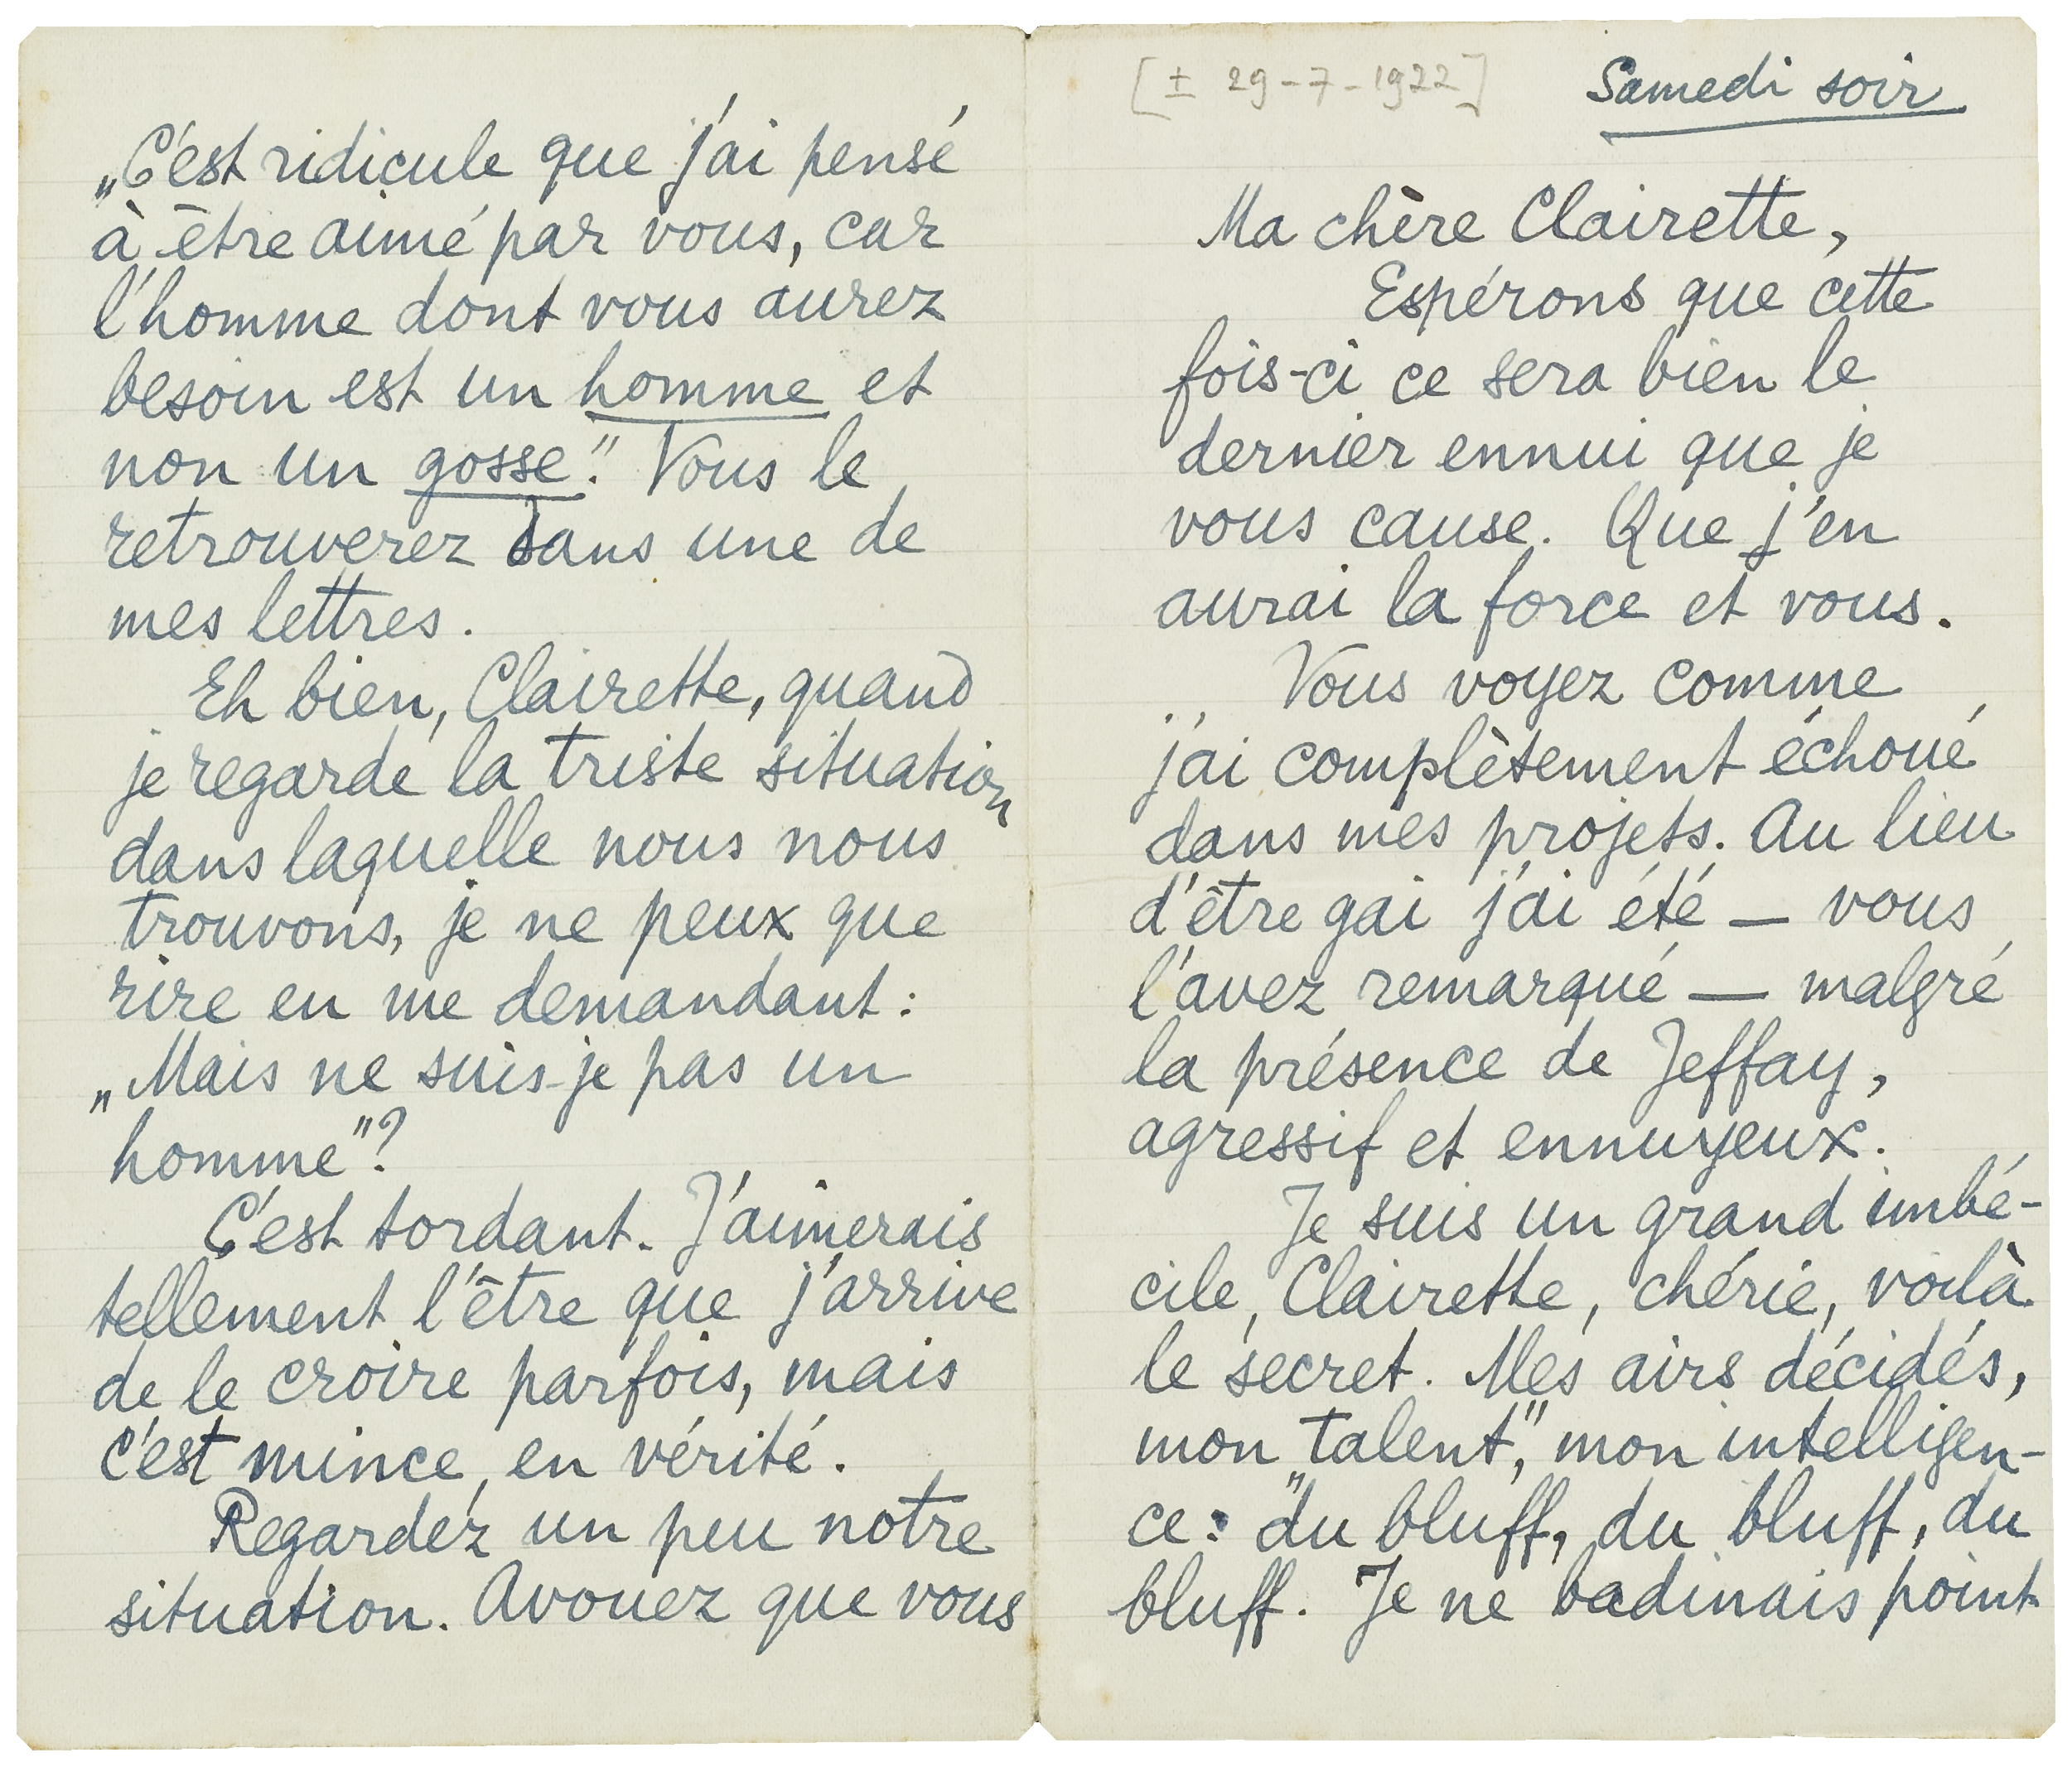 [± 29-7-1922] Samedi soir
Ma chère Clairette,
Espérons que cette
fois-ci ce sera bien le
dernier ennui que je
vous cause. Que j'en
aurai la force et vous.
Vous voyez comme
j'ai complètement échoué
dans mes projets. Au lieu
d'être gai j'ai été — vous
l'avez remarqué — malgré
la présence de Jeffay,
agressif et ennuyeux.
Je suis un grand imbé-
cile, Clairette, chérie, voilà
le secret. Mes airs décidés,
mon „talent", mon intelligen-
ce: du bluff, du bluff, du
bluff. Je ne badinais point
„C'est ridicule que j'ai pensé
à être aimé par vous, car
l'homme dont vous aurez
besoin est un homme et
non un gosse." Vous le
retrouverez dans une de
mes lettres.
Eh bien, Clairette, quand
je regarde la triste situation
dans laquelle nous nous
trouvons, je ne peux que
rire en me demandant:
„Mais ne suis-je pas un
homme"?
C'est tordant. J'aimerais
tellement l'être que j'arrive
de le croire parfois, mais
c'est mince, en vérité.
Regardez un peu notre
situation. Avouez que vous